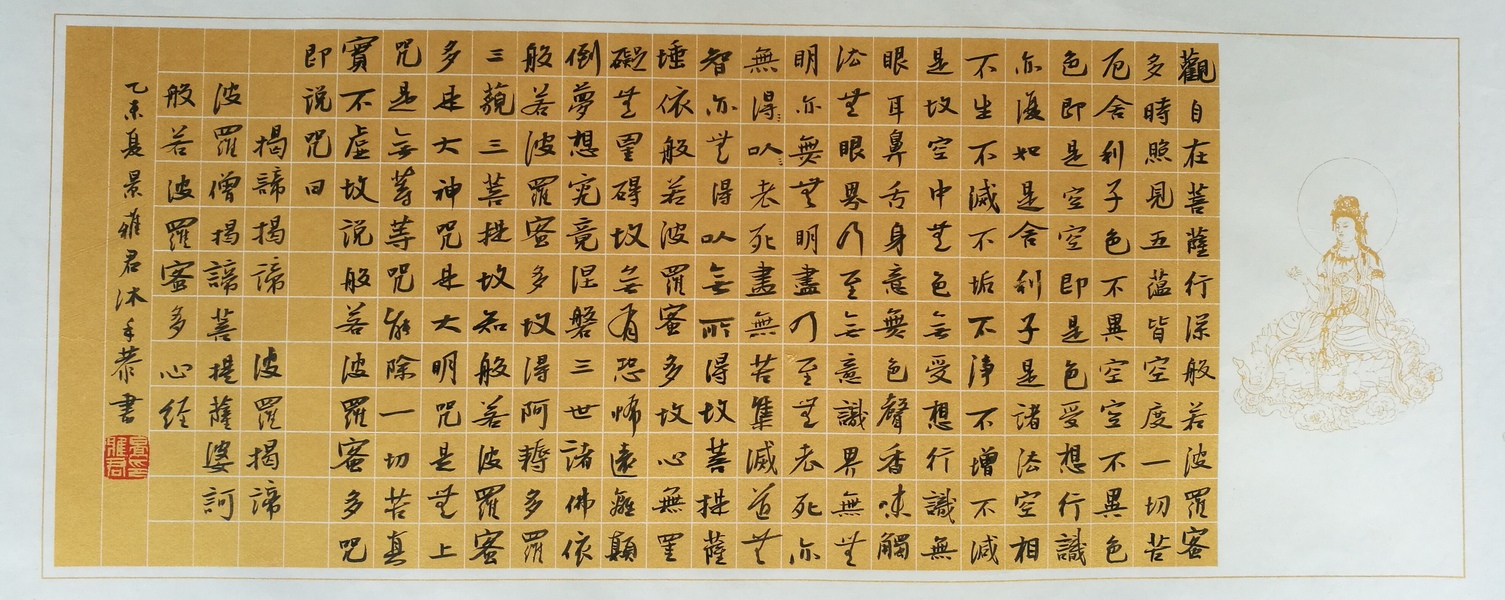 觀自在菩薩行深般若波羅蜜
多時照見五蘊皆空度一切苦
厄舍利子色不異空空不異色
色即是空空即是色受想行識
亦復如是舍利子是諸法空相
不生不滅不垢不淨不增不減
是故空中無色無受想行識無
眼耳鼻舌身意無色聲香味觸
法無眼界乃至無意識界無無
明亦無無明盡乃至無老死亦
無得以老死盡無苦集滅道無
智亦無得以無所得故菩提薩
埵依般若波羅蜜多故心無罣
礙無罣碍故無有恐怖遠離顛
倒夢想究竟涅槃三世諸佛依
般若波羅蜜多故得阿耨多羅
三藐三菩提故知般若波羅蜜
多是大神咒是大明咒是無上
咒是無等等咒能除一切苦真
實不虛故說般若波羅蜜多咒
即說咒曰
揭諦揭諦 波羅揭諦
波羅僧揭諦菩提薩婆訶
般若波羅蜜多心经
乙未夏景雅君沐手恭書
景雅君印